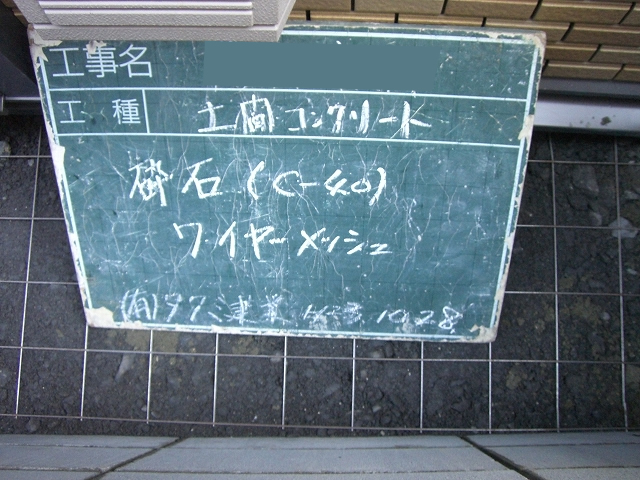 工事名
工種 土間コンクリート
砕石(C-40)
ワイヤーメッシュ
(有)タクミ 10.28